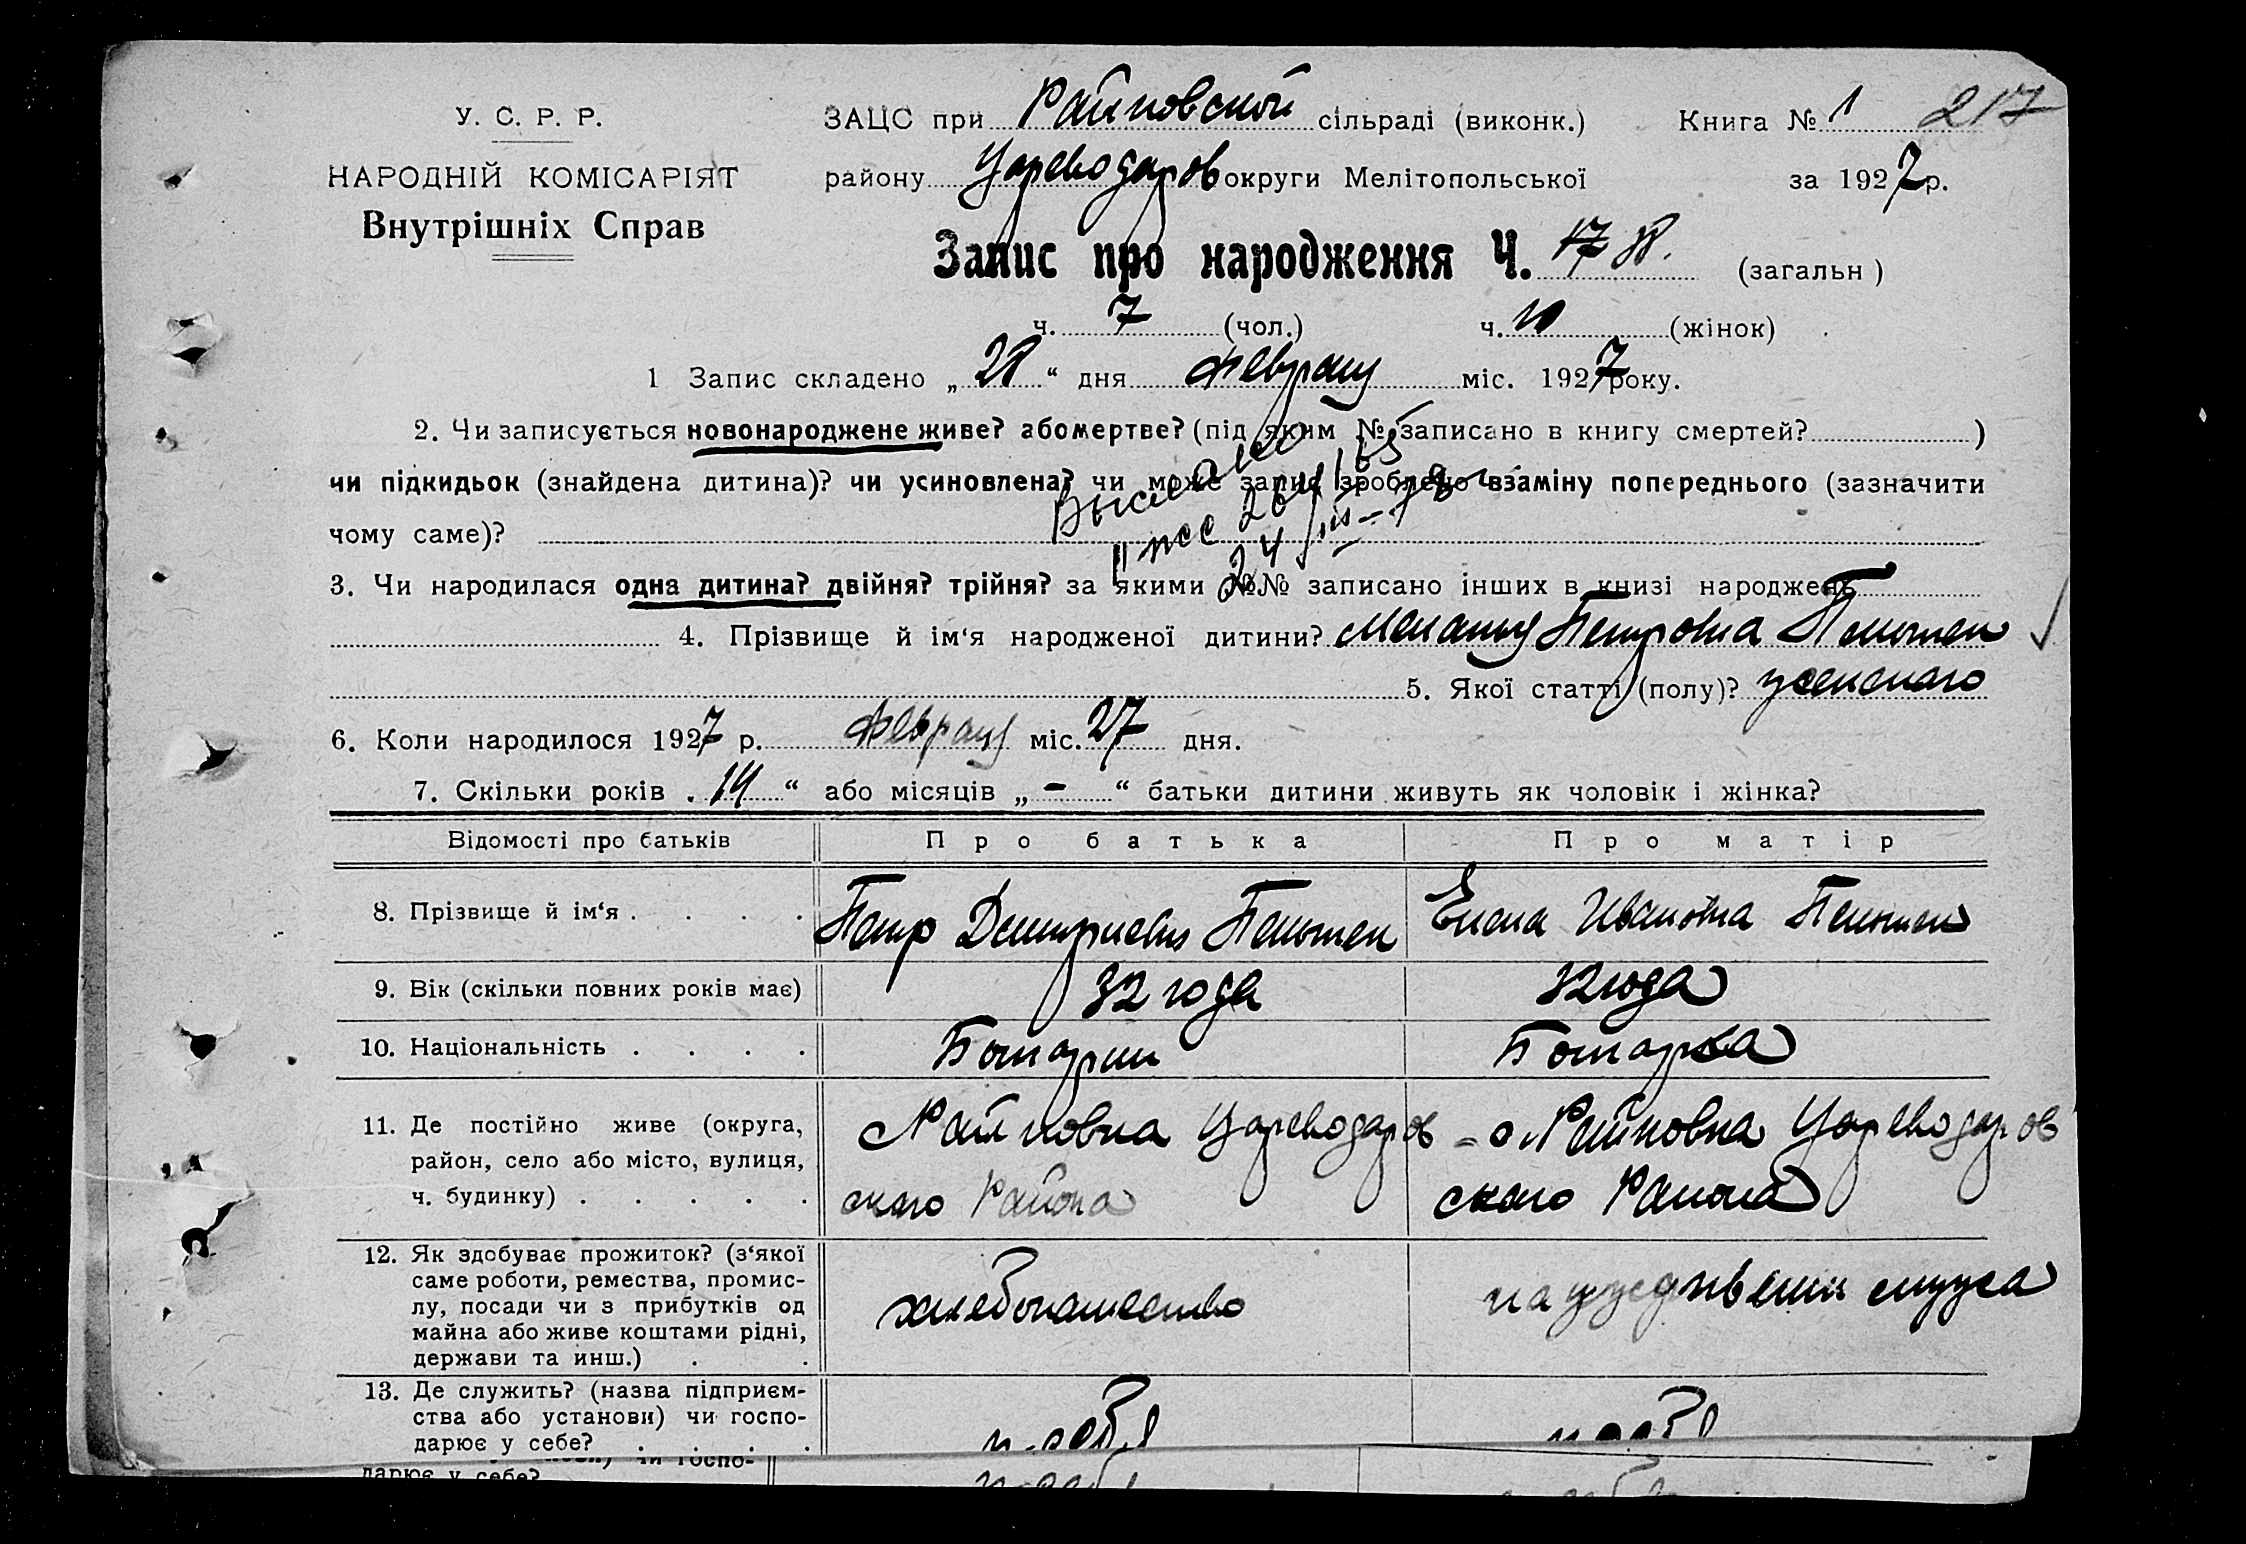 У. С. Р. Р.
НАРОДНІЙ КОМІСАРІЯТ
Внутрішніх Справ
ЗАЦС при Райновской сільраді (виконк.) Книга № 1 217
району Цареводаров округи Мелітопольської за 1927 р.
Запис про народження Ч. 17 (загальн )
ч. 7 (чол.) ч. 10 (жінок)
1 Запис складено „28“ дня Февраля міс. 1927 року.
2. Чи записується новонароджене живе? або мертве? (під яким № записано в книгу смертей? )
чи підкидьок (знайдена дитина)? чи усиновлена? чи може запис зроблено взаміну попереднього (зазначити
чому саме)?
Выслано
24
3. Чи народилася одна дитина? двійня? трійня? за якими №№ записано інших в книзі народжень
4. Прізвище й ім‘я народженої дитини? Меланья Петровна
5. Якої статті (полу)? женскаго
6. Коли народилося 1927 р. Февраля міс. 27 дня.
7. Скільки років „14“ або місяців „-“ батьки дитини живуть як чоловік і жінка?
Відомості про батьків Про батька Про матір
8. Прізвище й ім‘я . . . . Петр Дмитриевич Елена Ивановна
9. Вік (скільки повних років має) 32 года 32 года
10. Національність . . . . Болгарин Болгарка
11. Де постійно живе (округа,
район, село або місто, вулиця,
ч. будинку) . . . . .
с Райновка Цареводаров
скаго Района
с Райновка Цареводаров
скаго Района
12. Як здобуває прожиток? (з‘якої
саме роботи, ремества, промис-
лу, посади чи з прибутків од
майна або живе коштами рідні,
держави та инш.) . .
хлебопашество
на иждивении мужа
13. Де служить? (назва підприєм-
ства або установи) чи госпо-
дарює у себе? . . . .
у себя
у себя
дарює у себе?